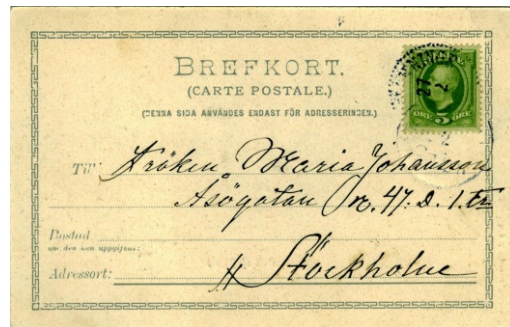 BREFKORT.
(CARTE POSTALE.)
(DENNA SIDA ANVÄNDES ENDAST FÖR ADRESSERINGEN.)
5 ÖRE 5 ÖRE
27
2
Till Fröken Maria Johansson
Åsögatan No. 47. D. 1. tr
Bostad
om den kan uppgifvas:
Adressort: Stockholm